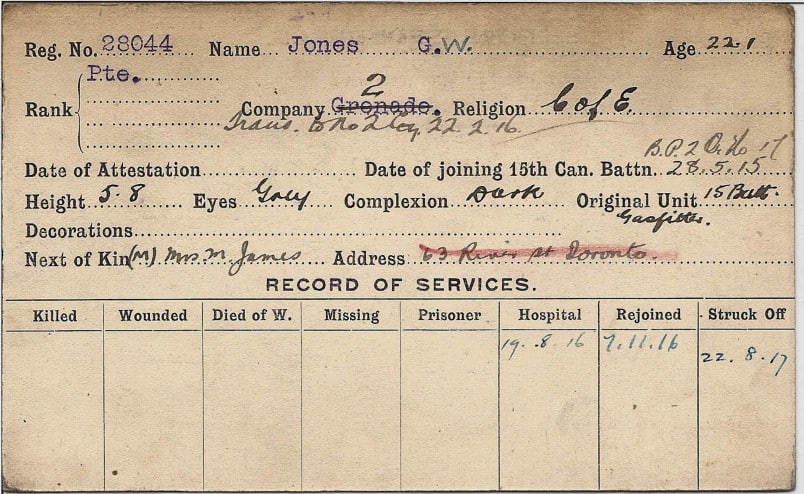 Reg. No. 28044 Name Jones G.W. Age 22.1
Pte.
2
Rank Company Grenade. Religion C of E.
Trans. to No 2 Coy. 22.2.16.
B.P.2
Date of Attestation Date of joining 15th Can. Battn. 28.5.15
Height 5.8 Eyes Grey Complexion Dark Original Unit 15 Batt.
Gasfitter.
Decorations
Next of Kin (M) Mrs. M. James Address 63 River St Toronto.
RECORD OF SERVICES.
Killed Wounded Died of W. Missing Prisoner Hospital Rejoined Struck Off
19.8.16 7.11.16 22.8.17